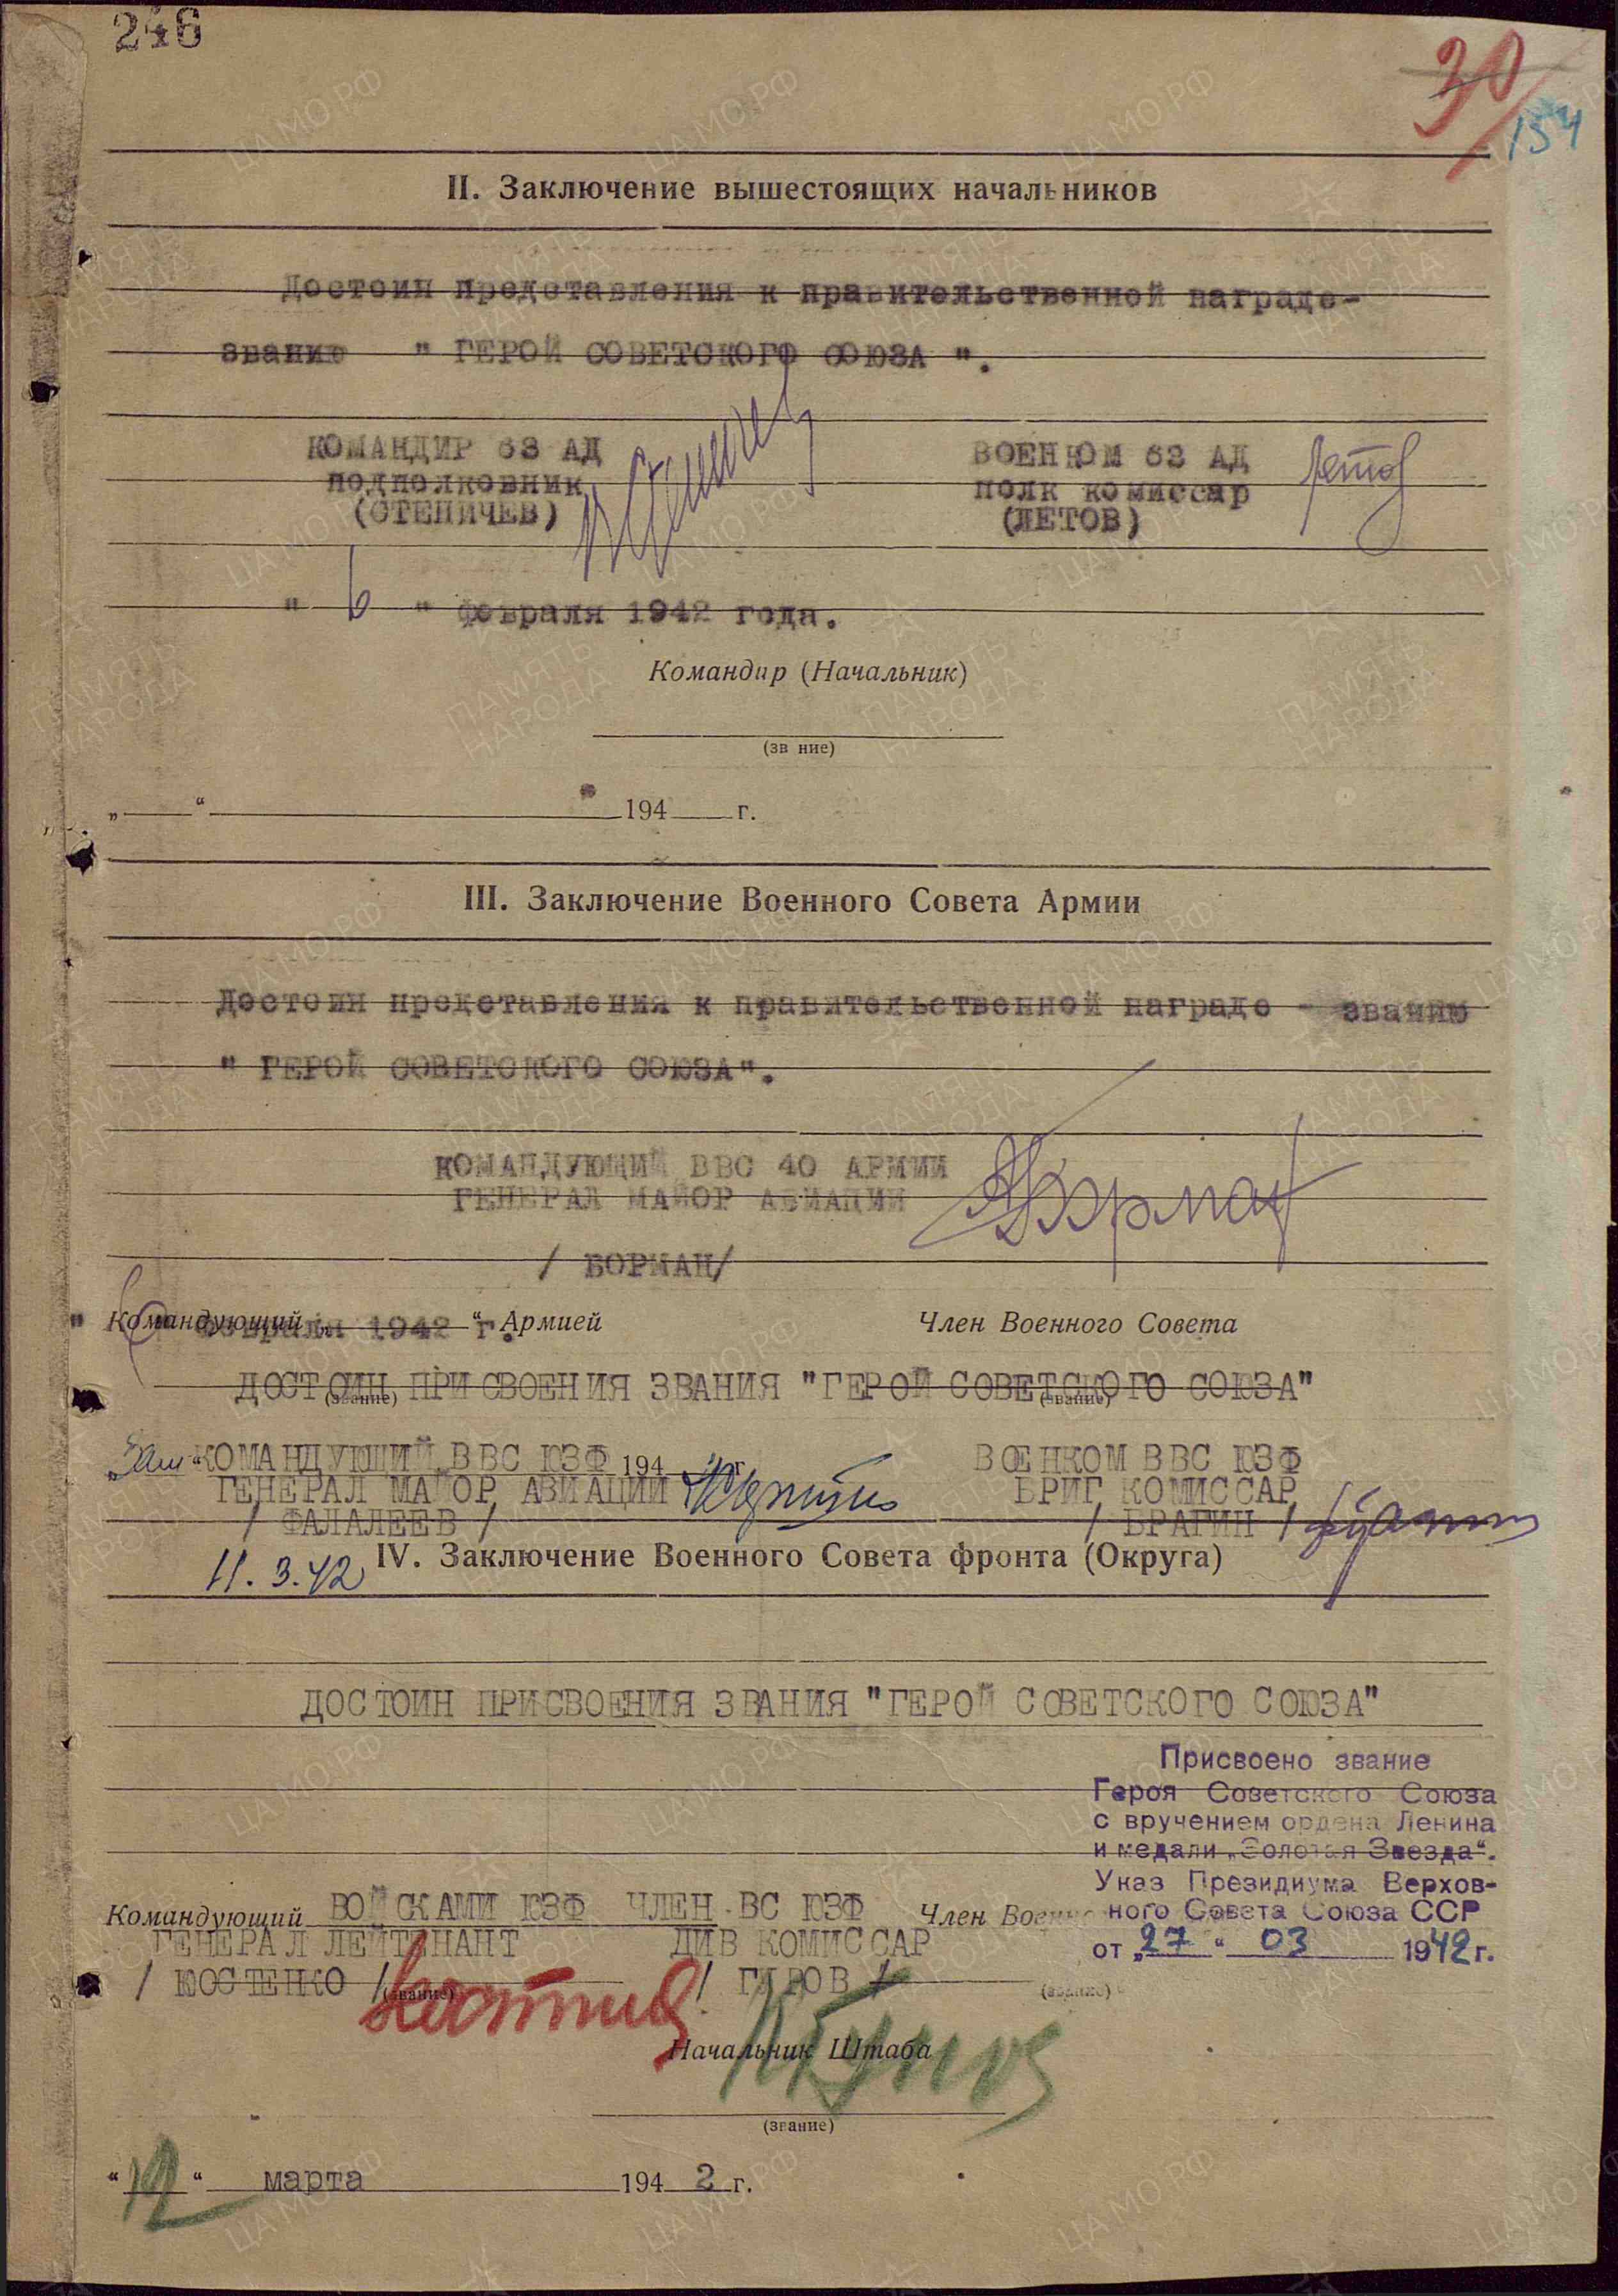 246
30
154
II. Заключение вышестоящих начальников
Достоин представления к правительственной награде-
званию " ГЕРОЙ СОВЕТСКОГО СОЮЗА ".
КОМАНДИР 63 АД ВОЕНКОМ 63 АД
подполковник полк комиссар
(СТЕНИЧЕВ) (ЛЕТОВ) Летов
" 6 " февраля 1942 года.
Командир (Начальник)
(зв ние)
„ “ 194 г.
III. Заключение Военного Совета Армии
Достоин представления к правительственной награде - званию
" ГЕРОЙ СОВЕТСКОГО СОЮЗА".
КОМАНДУЮЩИЙ ВВС 40 АРМИИ
ГЕНЕРАЛ МАЙОР АВИАЦИИ Борман
/ БОРМАН/
Командующий “ Армией Член Военного Совета
" " февраля 1942 г.
ДОСТОИН ПРИСВОЕНИЯ ЗВАНИЯ "ГЕРОЙ СОВЕТСКОГО СОЮЗА"
(звание) (звание)
Зам КОМАНДУЮЩИЙ ВВС ЮЗФ 194 г. ВОЕНКОМ ВВС ЮЗФ
ГЕНЕРАЛ МАЙОР АВИАЦИИ БРИГ КОМИССАР
/ ФАЛАЛЕЕВ / / БРАГИН /
11.3.42 IV. Заключение Военного Совета фронта (Округа)
ДОСТОИН ПРИСВОЕНИЯ ЗВАНИЯ "ГЕРОЙ СОВЕТСКОГО СОЮЗА"
Присвоено звание
Героя Советского Союза
с вручением ордена Ленина
и медали „Золотая Звезда“.
Указ Президиума Верхов-
ного Совета Союза ССР
от „27“ 03 1942 г.
Командующий ВОЙСКАМИ ЮЗФ ЧЛЕН ВС ЮЗФ Член Военно
ГЕНЕРАЛ ЛЕЙТЕНАНТ ДИВ КОМИССАР
/ КОСТЕНКО / / ГУРОВ /
(звание) (звание)
Начальник Штаба
(звание)
“12“ марта 194 2 г.
ЦА МО.РФ
ПАМЯТЬ НАРОДА